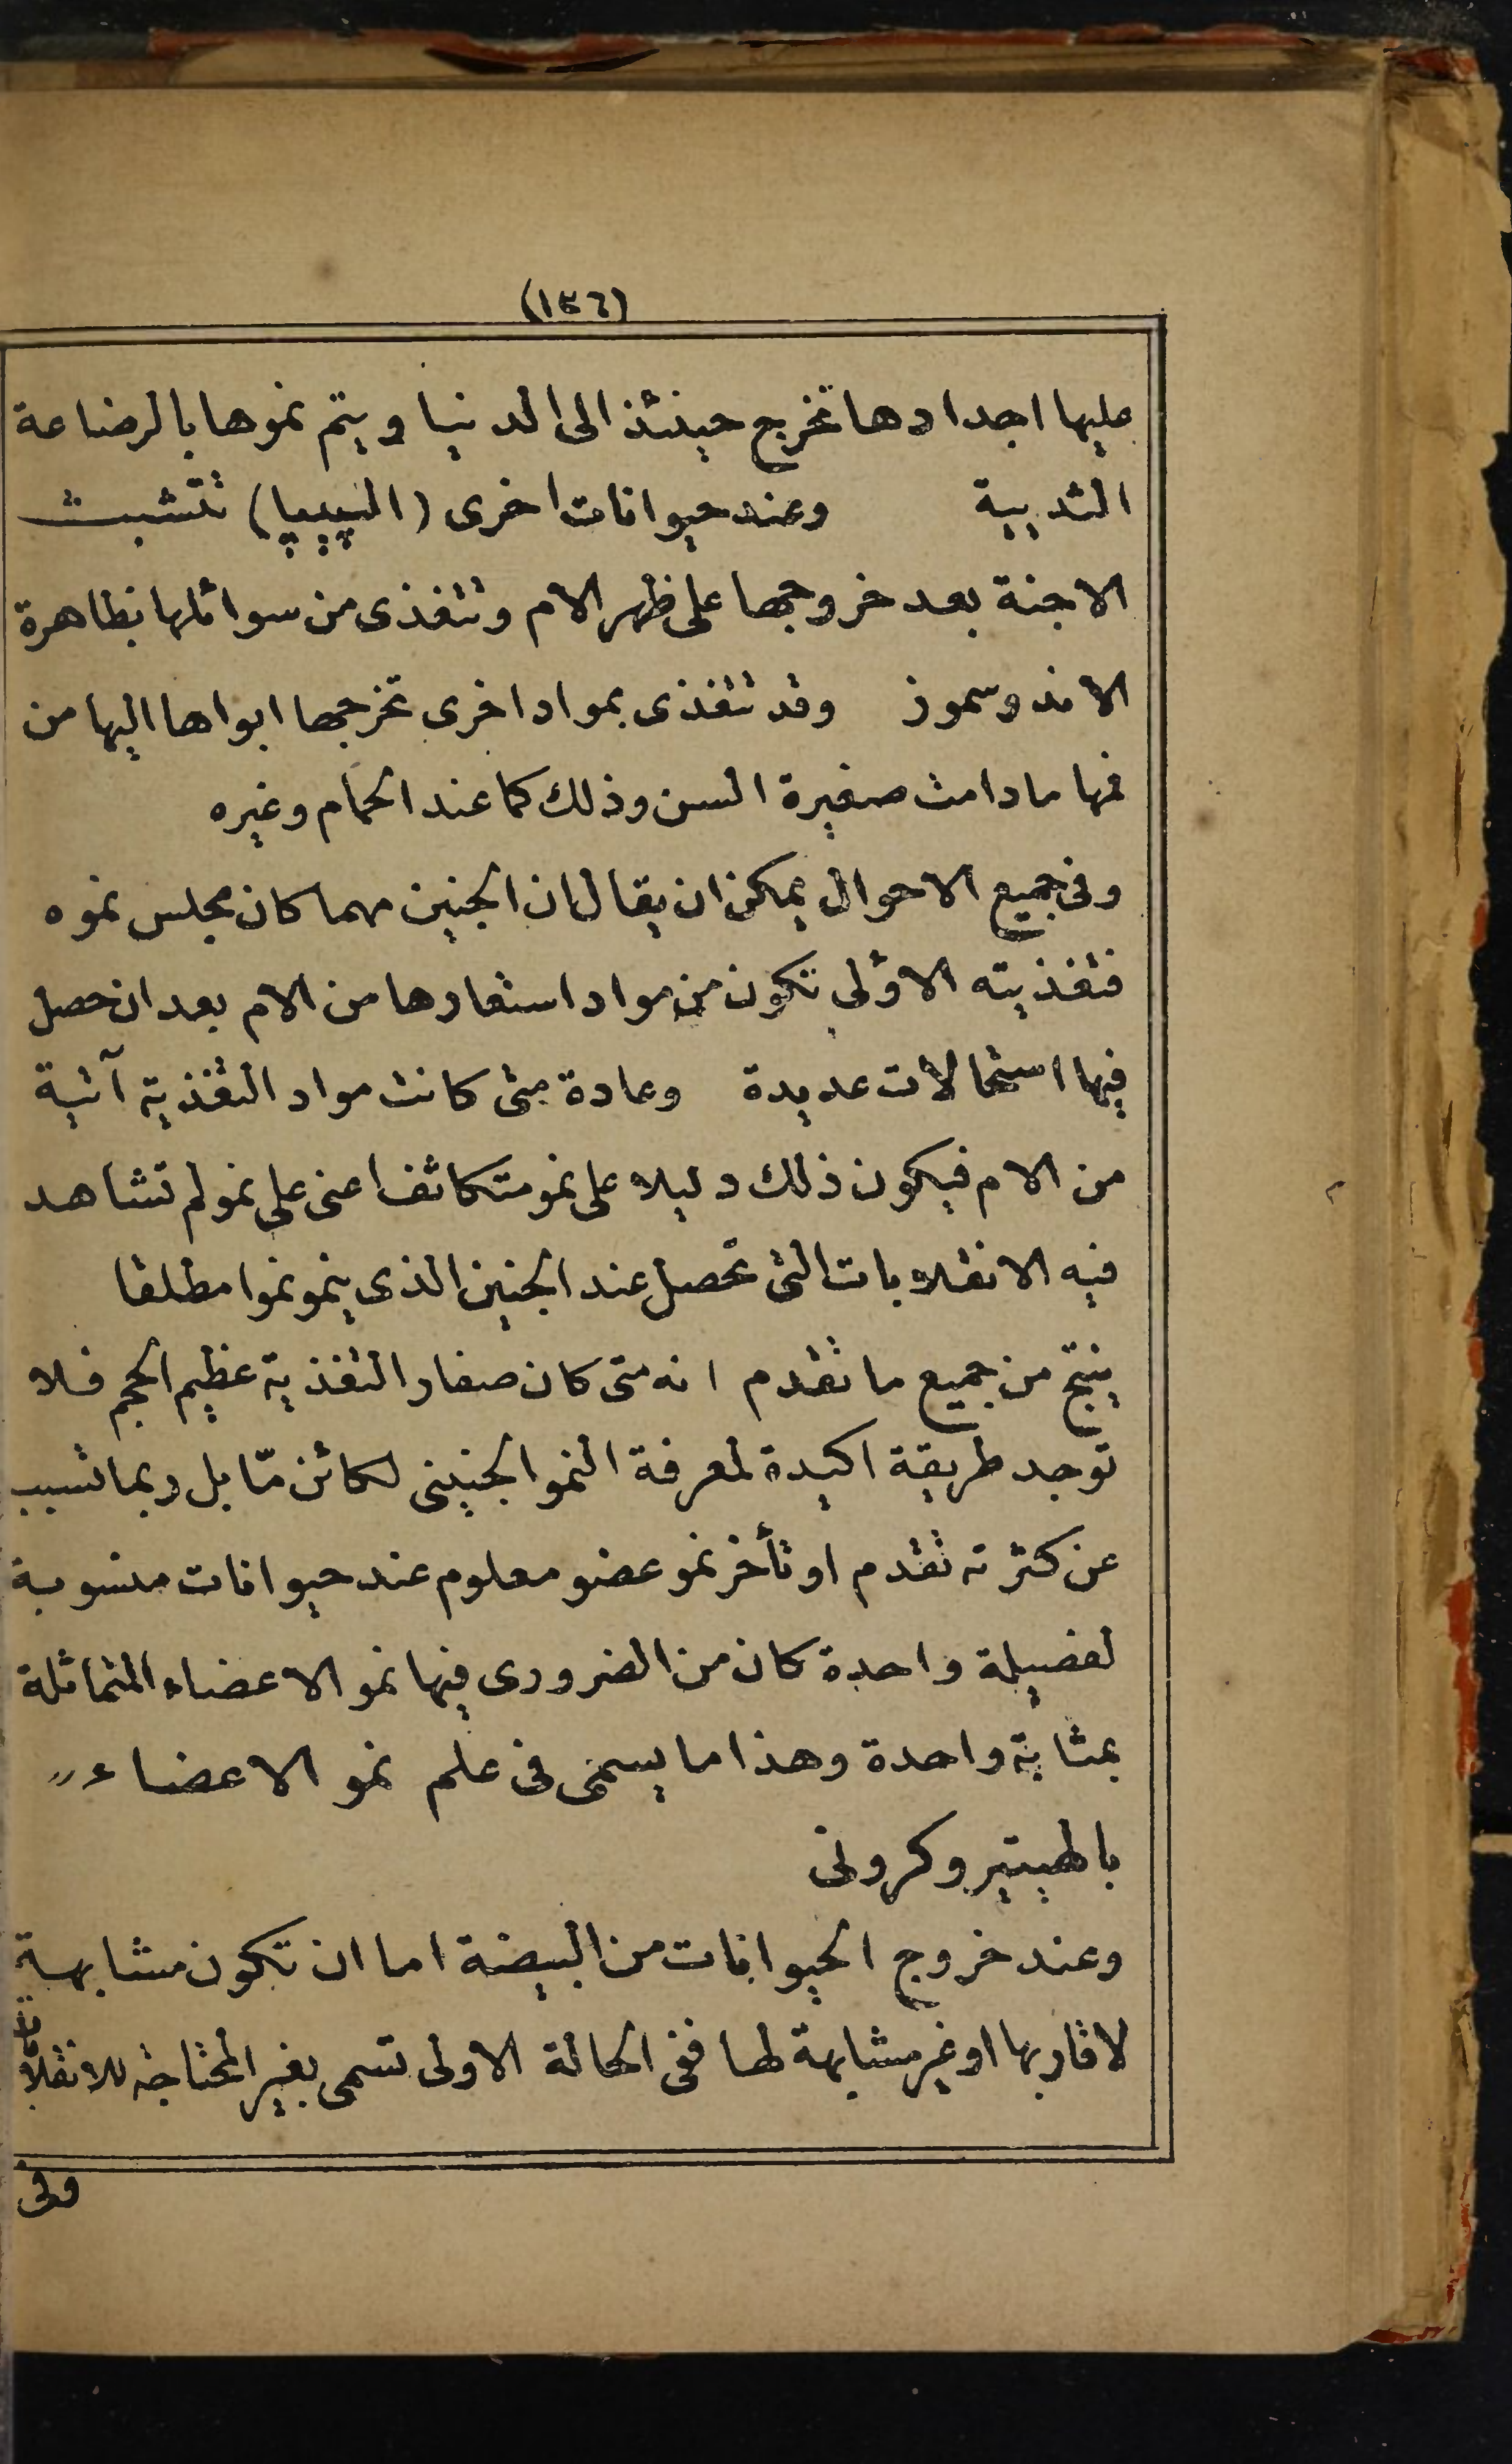 (١٣٦)
عليها اجدادها تخرج حينئذ الى الدنيا ويتم نموها بالرضاعة
الثديية وعند حيوانات اخرى (الپيپا) تتشبث
الاجنة بعد خروجها على ظهر الام وتتغذى من سوائلها بظاهرة
الاندوسموز وقد تتغذى بمواد اخرى تخرجها ابواها اليها من
فمها ما دامت صغيرة السن وذلك كما عند الحمام وغيره
وفى جميع الاحوال يمكن ان يقال ان الجنين مهما كان مجلس نموه
فتغذيته الاولى تكون من مواد استعارها من الام بعد ان حصل
فيها استحالات عديدة وعادة متى كانت مواد التغذية آتية
من الام فيكون ذلك دليلا على نمو متكاثف اعنى على نمو لم تشاهد
فيه الانقلابات التى تحصل عند الجنين الذى ينمو نموا مطلقا
ينتج من جميع ما تقدم انه متى كان صفار التغذية عظيم الحجم فلا
توجد طريقة اكيدة لمعرفة النمو الجنينى لكائن مّا بل ربما تسبب
عن كثرته تقدم او تأخر نمو عضو معلوم عند حيوانات منسوبة
لفصيلة واحدة كان من الضرورى فيها نمو الاعضاء المتماثلة
بمثابة واحدة وهذا ما يسمى فى علم نمو الاعضاء
بالهيتيروكرونى
وعند خروج الحيوانات من البيضة اما ان تكون مشابهة
لاقاربها او غير مشابهة لها ففى الحالة الاولى تسمى بغير المحتاجة للانقلابات
وفى